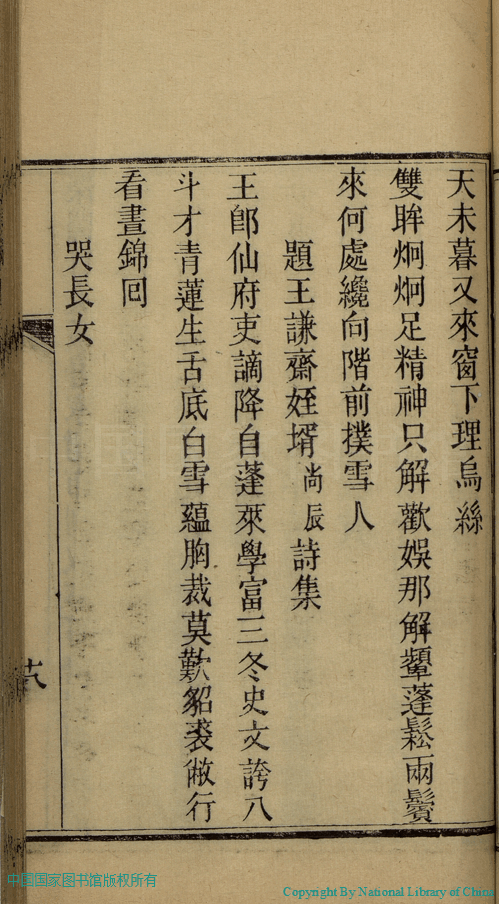 天未暮又來窗下理烏絲
雙眸炯炯足精神只解歡娛那解顰蓬鬆兩鬢
來何處纔向階前撲雪人
題王謙齋姪壻尚辰詩集
王郎仙府吏謫降自蓬萊學富三冬史文誇八
斗才青蓮生舌底白雪蘊胸裁莫歎貂裘敝行
看晝錦回
哭長女
十八
中国国家图书馆版权所有
Copyright By National Library of China